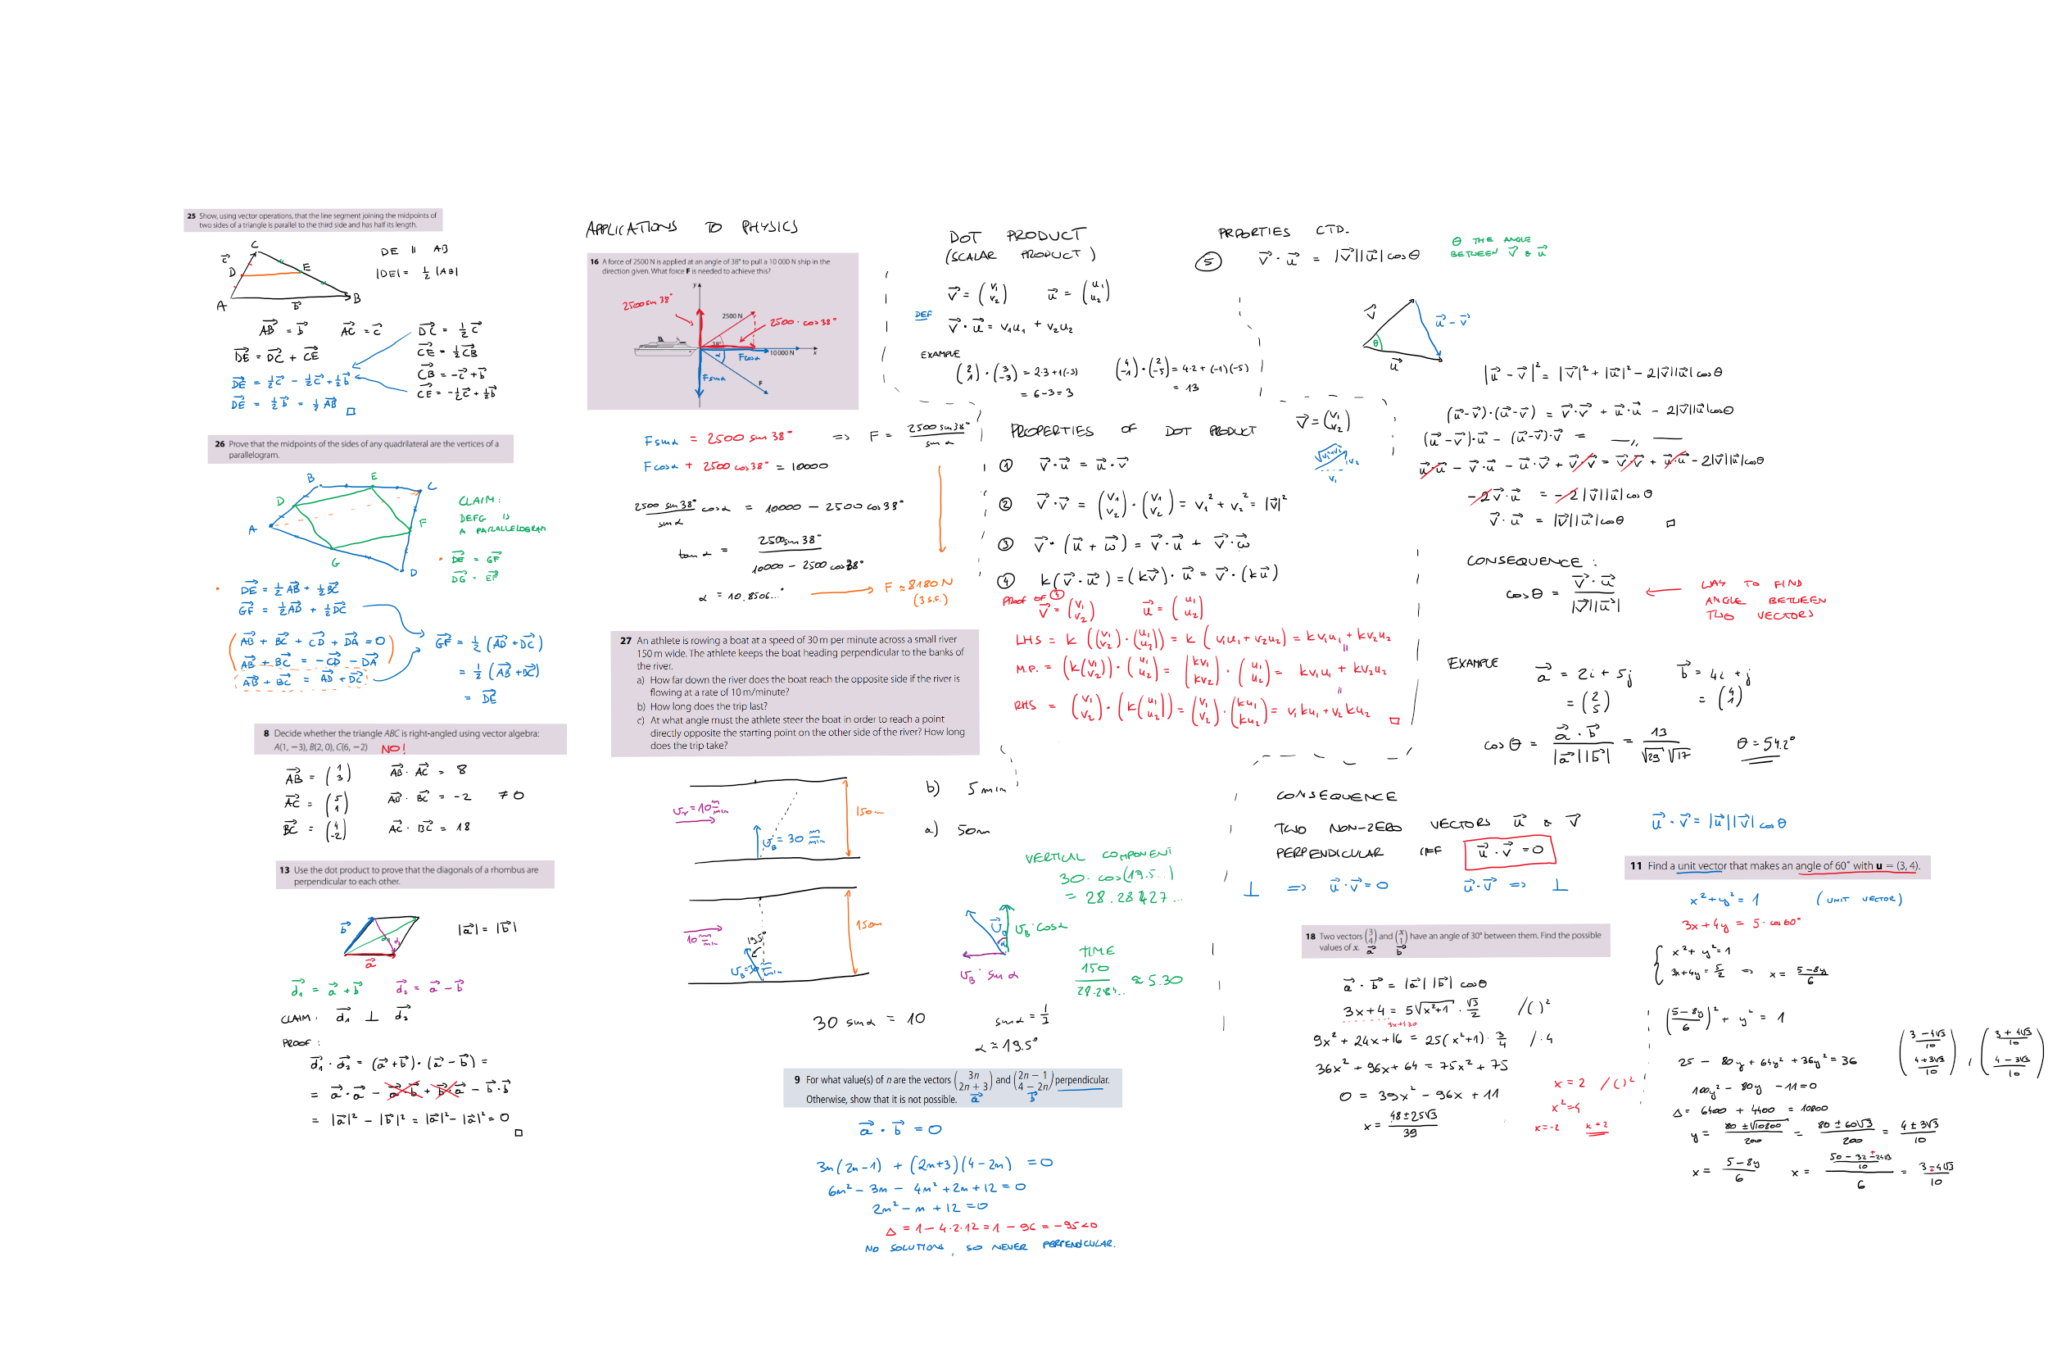 25 Show, using vector operations, that the line segment joining the midpoints of
two sides of a triangle is parallel to the third side and has half its length.
C
c⃗
D
E
A
b⃗
B
DE || AB
|DE| = ½ |AB|
AB⃗ = b⃗ AC⃗ = c⃗
DE⃗ = DC⃗ + CE⃗
DE⃗ = ½c⃗ - ½c⃗ + ½b⃗
DE⃗ = ½b⃗ = ½AB⃗ □
DC⃗ = ½c⃗
CE⃗ = ½CB⃗
CB⃗ = -c⃗ + b⃗
CE⃗ = -½c⃗ + ½b⃗
26 Prove that the midpoints of the sides of any quadrilateral are the vertices of a
parallelogram.
B E C
D
A
F
G
D
CLAIM:
DEFG IS
A PARALLELOGRAM
• DE⃗ = GF⃗
DG⃗ = EF⃗
• DE⃗ = ½AB⃗ + ½BC⃗
GF⃗ = ½AD⃗ + ½DC⃗
(AB⃗ + BC⃗ + CD⃗ + DA⃗ = 0)
AB⃗ + BC⃗ = -CD⃗ - DA⃗
AB⃗ + BC⃗ = AD⃗ + DC⃗
GF⃗ = ½(AD⃗ + DC⃗)
= ½(AB⃗ + BC⃗)
= DE⃗
8 Decide whether the triangle ABC is right-angled using vector algebra:
A(1, −3), B(2, 0), C(6, −2) NO!
AB⃗ = (1 3) AB⃗ · AC⃗ = 8
AC⃗ = (5 1) AB⃗ · BC⃗ = -2 ≠ 0
BC⃗ = (4 -2) AC⃗ · BC⃗ = 18
13 Use the dot product to prove that the diagonals of a rhombus are
perpendicular to each other.
b⃗
a⃗
|a⃗| = |b⃗|
d₁⃗ = a⃗ + b⃗ d₂⃗ = a⃗ - b⃗
CLAIM: d₁⃗ ⊥ d₂⃗
PROOF:
d₁⃗ · d₂⃗ = (a⃗ + b⃗) · (a⃗ - b⃗) =
= a⃗ · a⃗ - a⃗ · b⃗ + b⃗ · a⃗ - b⃗ · b⃗
= |a⃗|² - |b⃗|² = |a⃗|² - |a⃗|² = 0
□
APPLICATIONS TO PHYSICS
16 A force of 2500 N is applied at an angle of 38° to pull a 10 000 N ship in the
direction given. What force F is needed to achieve this?
y
2500 sin 38°
2500 N
2500 · cos 38°
38°
α
F cos α
10 000 N
x
F sin α
F
F sin α = 2500 sin 38° => F = 2500 sin 38° / sin α
F cos α + 2500 cos 38° = 10000
2500 sin 38° / sin α cos α = 10000 - 2500 cos 38°
tan α = 2500 sin 38° / 10000 - 2500 cos 38°
α = 10.8506...°
F = 8180 N
(3 S.F.)
27 An athlete is rowing a boat at a speed of 30 m per minute across a small river
150 m wide. The athlete keeps the boat heading perpendicular to the banks of
the river.
a) How far down the river does the boat reach the opposite side if the river is
flowing at a rate of 10 m/minute?
b) How long does the trip last?
c) At what angle must the athlete steer the boat in order to reach a point
directly opposite the starting point on the other side of the river? How long
does the trip take?
v_r = 10 m/min
v_B = 30 m/min
150 m
b) 5 min
a) 50m
10 m/min
19.5°
v_B = 30 m/min
150m
VERTICAL COMPONENT
30 · cos(19.5..)
= 28.28427...
v_B
α
v_B · cos α
v_B · sin α
TIME
150 / 28.284.. ≈ 5.30
30 sin α = 10
sin α = 1/3
α = 19.5°
9 For what value(s) of n are the vectors (3n 2n + 3) and (2n − 1 4 − 2n) perpendicular.
Otherwise, show that it is not possible. a⃗ b⃗
a⃗ · b⃗ = 0
3n(2n-1) + (2n+3)(4-2n) = 0
6n² - 3n - 4n² + 2n + 12 = 0
2n² - n + 12 = 0
Δ = 1 - 4·2·12 = 1 - 96 = -95 < 0
NO SOLUTIONS, SO NEVER PERPENDICULAR.
DOT PRODUCT
(SCALAR PRODUCT)
v⃗ = (v₁ v₂) u⃗ = (u₁ u₂)
DEF
v⃗ · u⃗ = v₁u₁ + v₂u₂
EXAMPLE
(2 1) · (3 -3) = 2·3 + 1(-3)
= 6-3 = 3
(4 -1) · (2 -5) = 4·2 + (-1)(-5)
= 13
PROPERTIES OF DOT PRODUCT
v⃗ = (v₁ v₂)
√v₁²+v₂²
v₂
v₁
① v⃗ · u⃗ = u⃗ · v⃗
② v⃗ · v⃗ = (v₁ v₂) · (v₁ v₂) = v₁² + v₂² = |v⃗|²
③ v⃗ · (u⃗ + w⃗) = v⃗ · u⃗ + v⃗ · w⃗
④ k(v⃗ · u⃗) = (kv⃗) · u⃗ = v⃗ · (ku⃗)
PROOF OF ④
v⃗ = (v₁ v₂) u⃗ = (u₁ u₂)
LHS = k((v₁ v₂) · (u₁ u₂)) = k(v₁u₁ + v₂u₂) = kv₁u₁ + kv₂u₂
M.P. = (k(v₁ v₂)) · (u₁ u₂) = (kv₁ kv₂) · (u₁ u₂) = kv₁u₁ + kv₂u₂
RHS = (v₁ v₂) · (k(u₁ u₂)) = (v₁ v₂) · (ku₁ ku₂) = v₁ku₁ + v₂ku₂ □
PROPERTIES CTD.
⑤ v⃗ · u⃗ = |v⃗||u⃗| cos θ
θ THE ANGLE
BETWEEN v⃗ & u⃗
v⃗
u⃗ - v⃗
θ
u⃗
|u⃗ - v⃗|² = |v⃗|² + |u⃗|² - 2|v⃗||u⃗| cos θ
(u⃗-v⃗)·(u⃗-v⃗) = v⃗·v⃗ + u⃗·u⃗ - 2|v⃗||u⃗|cos θ
(u⃗-v⃗)·u⃗ - (u⃗-v⃗)·v⃗ = —〃—
u⃗·u⃗ - v⃗·u⃗ - u⃗·v⃗ + v⃗·v⃗ = v⃗·v⃗ + u⃗·u⃗ - 2|v⃗||u⃗|cos θ
-2v⃗·u⃗ = -2|v⃗||u⃗| cos θ
v⃗·u⃗ = |v⃗||u⃗| cos θ □
CONSEQUENCE:
cos θ = v⃗·u⃗ / |v⃗||u⃗|
WAY TO FIND
ANGLE BETWEEN
TWO VECTORS
EXAMPLE
a⃗ = 2i + 5j b⃗ = 4i + j
= (2 5) = (4 1)
cos θ = a⃗·b⃗ / |a⃗||b⃗| = 13 / √29 √17 θ = 54.2°
CONSEQUENCE
TWO NON-ZERO VECTORS u⃗ & v⃗
PERPENDICULAR IFF u⃗·v⃗ = 0
⊥ => u⃗·v⃗ = 0 u⃗·v⃗ => ⊥
u⃗·v⃗ = |u⃗||v⃗| cos θ
18 Two vectors (3 4) and (x 1) have an angle of 30° between them. Find the possible
values of x. a⃗ b⃗
a⃗·b⃗ = |a⃗||b⃗| cos θ
3x+4 = 5√x²+1 · √3/2 /( )²
3x+4≥0
9x² + 24x + 16 = 25(x²+1) · 3/4 /·4
36x² + 96x + 64 = 75x² + 75
0 = 39x² - 96x + 11
x = 48 ± 25√3 / 39
x = 2 /( )²
x² = 4
x = -2 x = 2
11 Find a unit vector that makes an angle of 60° with u = (3, 4).
x² + y² = 1 (UNIT VECTOR)
3x + 4y = 5 · cos 60°
{ x² + y² = 1
3x + 4y = 5/2 => x = 5-8y / 6
(5-8y / 6)² + y² = 1
25 - 80y + 64y² + 36y² = 36
100y² - 80y - 11 = 0
Δ = 6400 + 4400 = 10800
y = 80 ± √10800 / 200 = 80 ± 60√3 / 200 = 4 ± 3√3 / 10
x = 5-8y / 6 x = 50 - 32 ∓ 24√3 / 10 / 6 = 3 ∓ 4√3 / 10
(3-4√3 / 10 4+3√3 / 10) , (3+4√3 / 10 4-3√3 / 10)